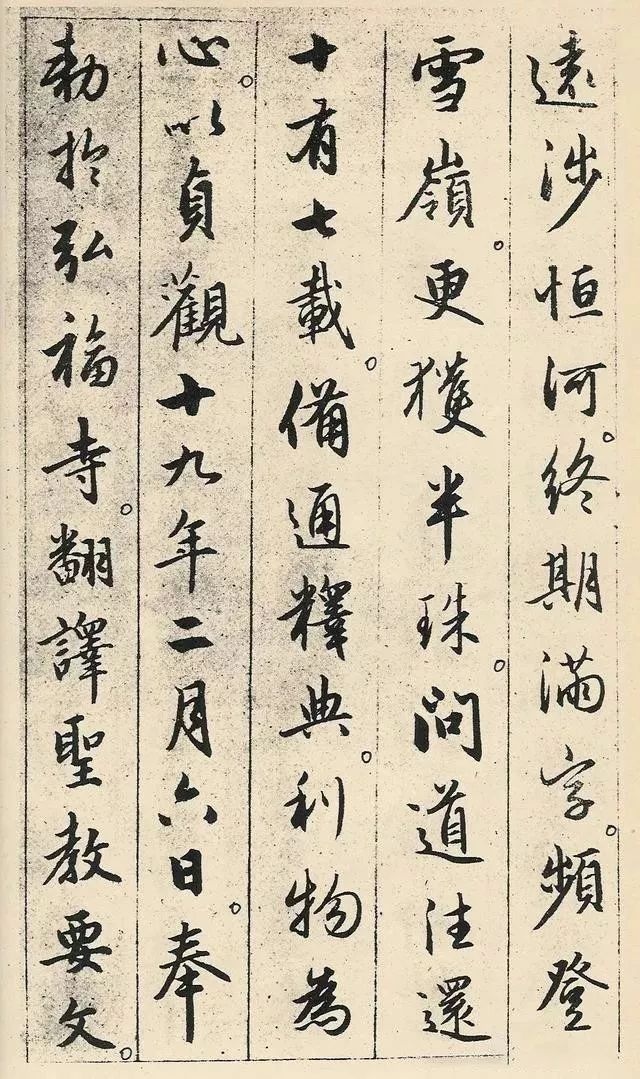 遠涉恒河。終期滿字。頻登
雪嶺。更獲半珠。問道往還
十有七載。備通釋典。利物為
心。以貞觀十九年二月六日。奉
勅於弘福寺。翻譯聖教要文。